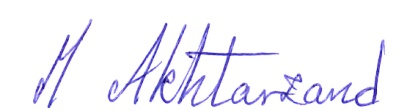 M Akhtarzand